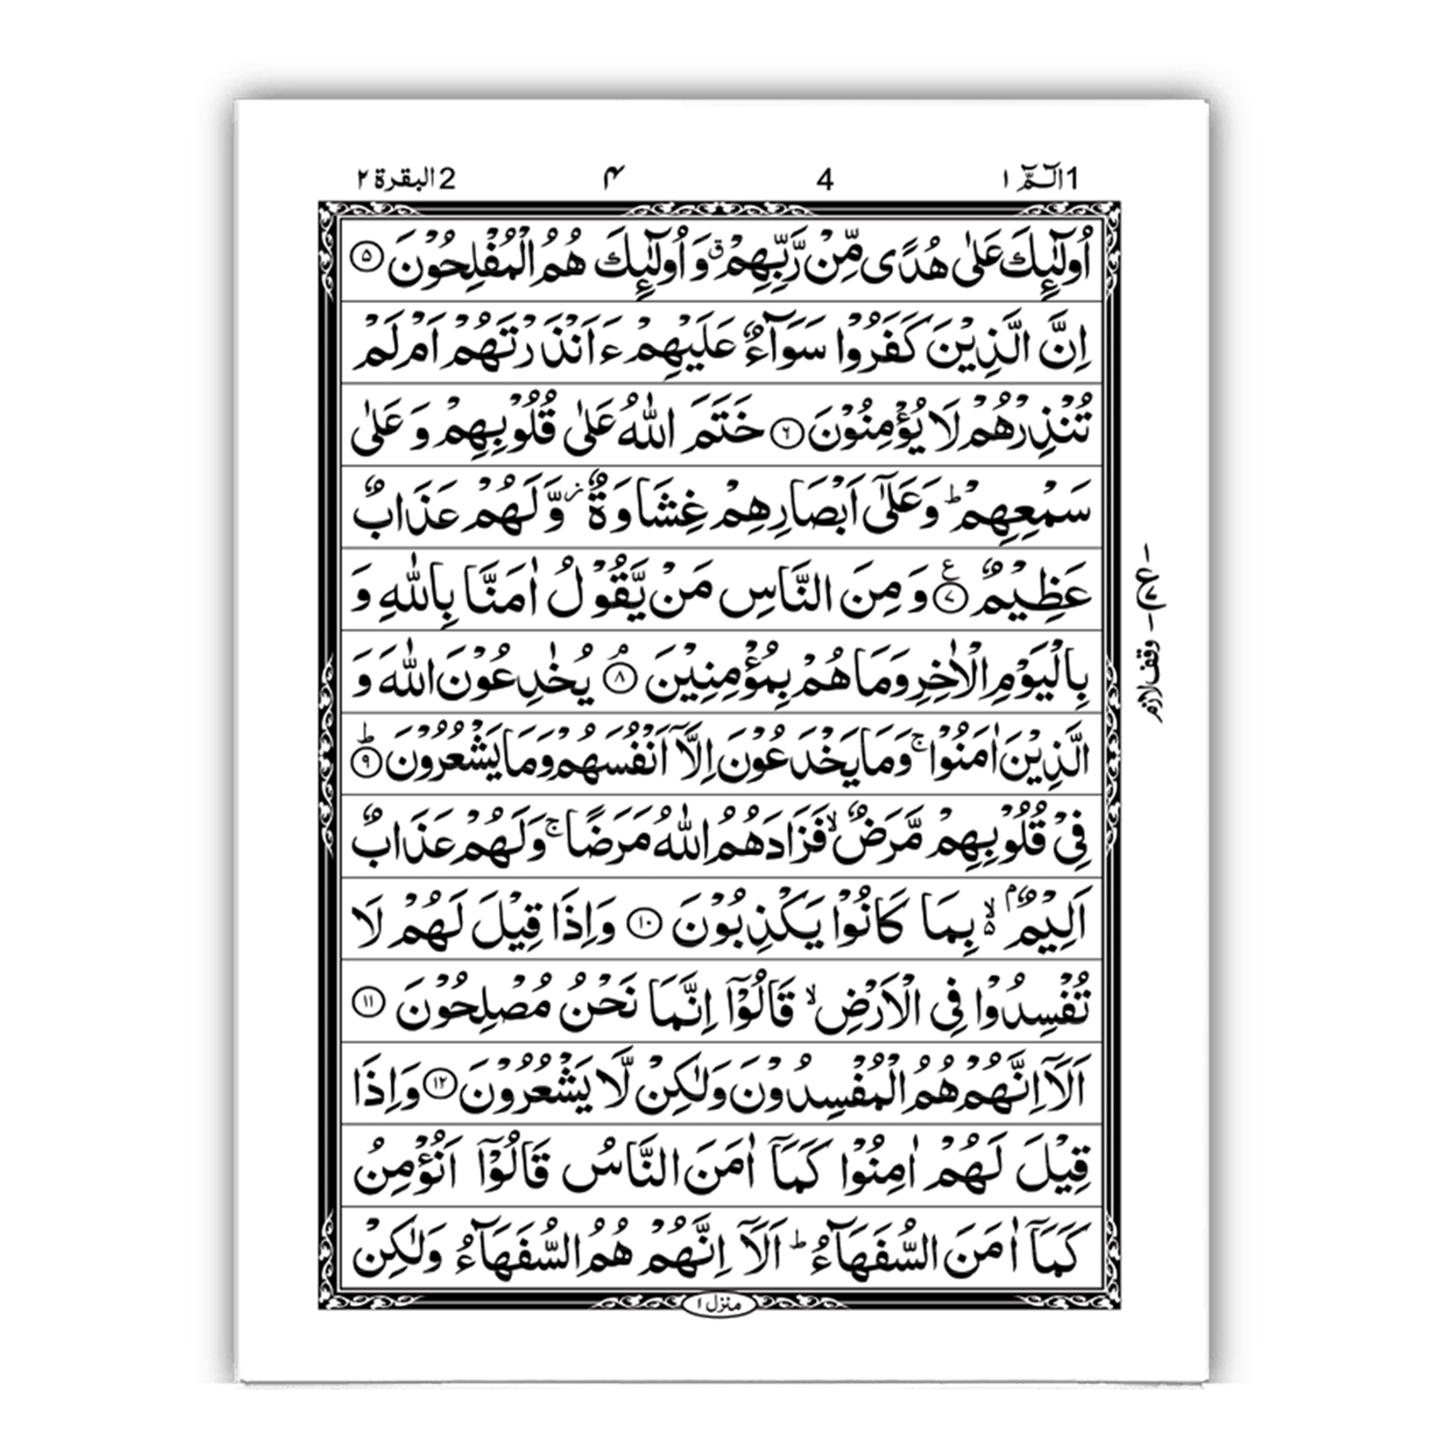 1 الٓمّٓ ١ 4 ۴ 2 البقرة ٢
اُولٰٓئِكَ عَلٰى هُدًى مِّنْ رَّبِّهِمْ ۗ وَ اُولٰٓئِكَ هُمُ الْمُفْلِحُوْنَ ۵
اِنَّ الَّذِيْنَ كَفَرُوْا سَوَآءٌ عَلَيْهِمْ ءَاَنْذَرْتَهُمْ اَمْ لَمْ
تُنْذِرْهُمْ لَا يُؤْمِنُوْنَ ۶ خَتَمَ اللّٰهُ عَلٰى قُلُوْبِهِمْ وَ عَلٰى
سَمْعِهِمْ ؕ وَ عَلٰٓى اَبْصَارِهِمْ غِشَاوَةٌ ؗ وَّ لَهُمْ عَذَابٌ
عَظِيْمٌ ۷ ع وَ مِنَ النَّاسِ مَنْ يَّقُوْلُ اٰمَنَّا بِاللّٰهِ وَ
بِالْيَوْمِ الْاٰخِرِ وَ مَا هُمْ بِمُؤْمِنِيْنَ ۘ ۸ يُخٰدِعُوْنَ اللّٰهَ وَ
الَّذِيْنَ اٰمَنُوْا ۚ وَ مَا يَخْدَعُوْنَ اِلَّاۤ اَنْفُسَهُمْ وَ مَا يَشْعُرُوْنَ ؕ ۹
فِيْ قُلُوْبِهِمْ مَّرَضٌ ۙ فَزَادَهُمُ اللّٰهُ مَرَضًا ۚ وَ لَهُمْ عَذَابٌ
اَلِيْمٌۢ ۙ۵ بِمَا كَانُوْا يَكْذِبُوْنَ ۱۰ وَ اِذَا قِيْلَ لَهُمْ لَا
تُفْسِدُوْا فِى الْاَرْضِ ۙ قَالُوْۤا اِنَّمَا نَحْنُ مُصْلِحُوْنَ ۱۱
اَلَاۤ اِنَّهُمْ هُمُ الْمُفْسِدُوْنَ وَ لٰكِنْ لَّا يَشْعُرُوْنَ ۱۲ وَ اِذَا
قِيْلَ لَهُمْ اٰمِنُوْا كَمَاۤ اٰمَنَ النَّاسُ قَالُوْۤا اَنُؤْمِنُ
كَمَاۤ اٰمَنَ السُّفَهَآءُ ؕ اَلَاۤ اِنَّهُمْ هُمُ السُّفَهَآءُ وَ لٰكِنْ
منزل ١
وقف لازم